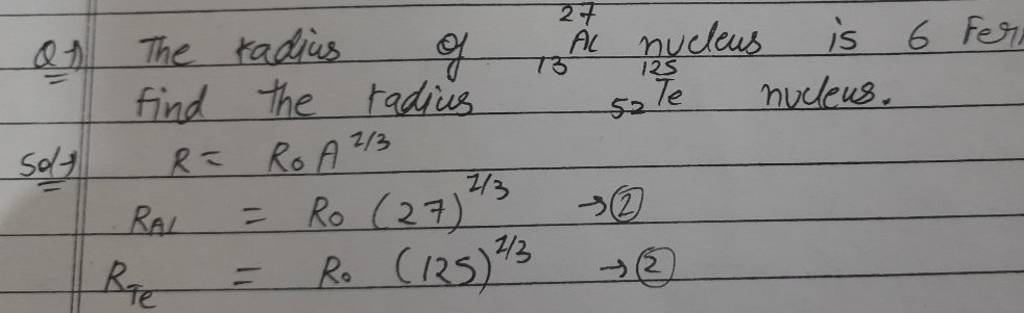 Q1) The radius of ²⁷₁₃Al nucleus is 6 Fer
find the radius ¹²⁵₅₂Te nucleus.
Sol) R = R₀ A^1/3
R_Al = R₀ (27)^1/3 → ②
R_Te = R₀ (125)^1/3 → ②